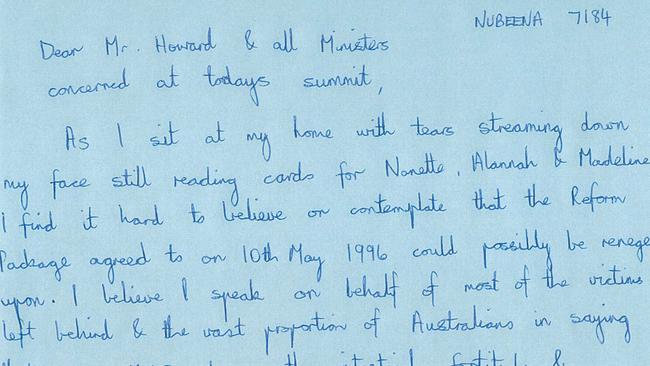 NUBEENA 7184
Dear Mr. Howard & all Ministers
concerned at todays summit,
As I sit at my home with tears streaming down
my face still reading cards for Nanette, Alannah & Madeline
I find it hard to believe or contemplate that the Reform
Package agreed to on 10th May 1996 could possibly be reneged
upon. I believe I speak on behalf of most of the victims
left behind & the vast proportion of Australians in saying